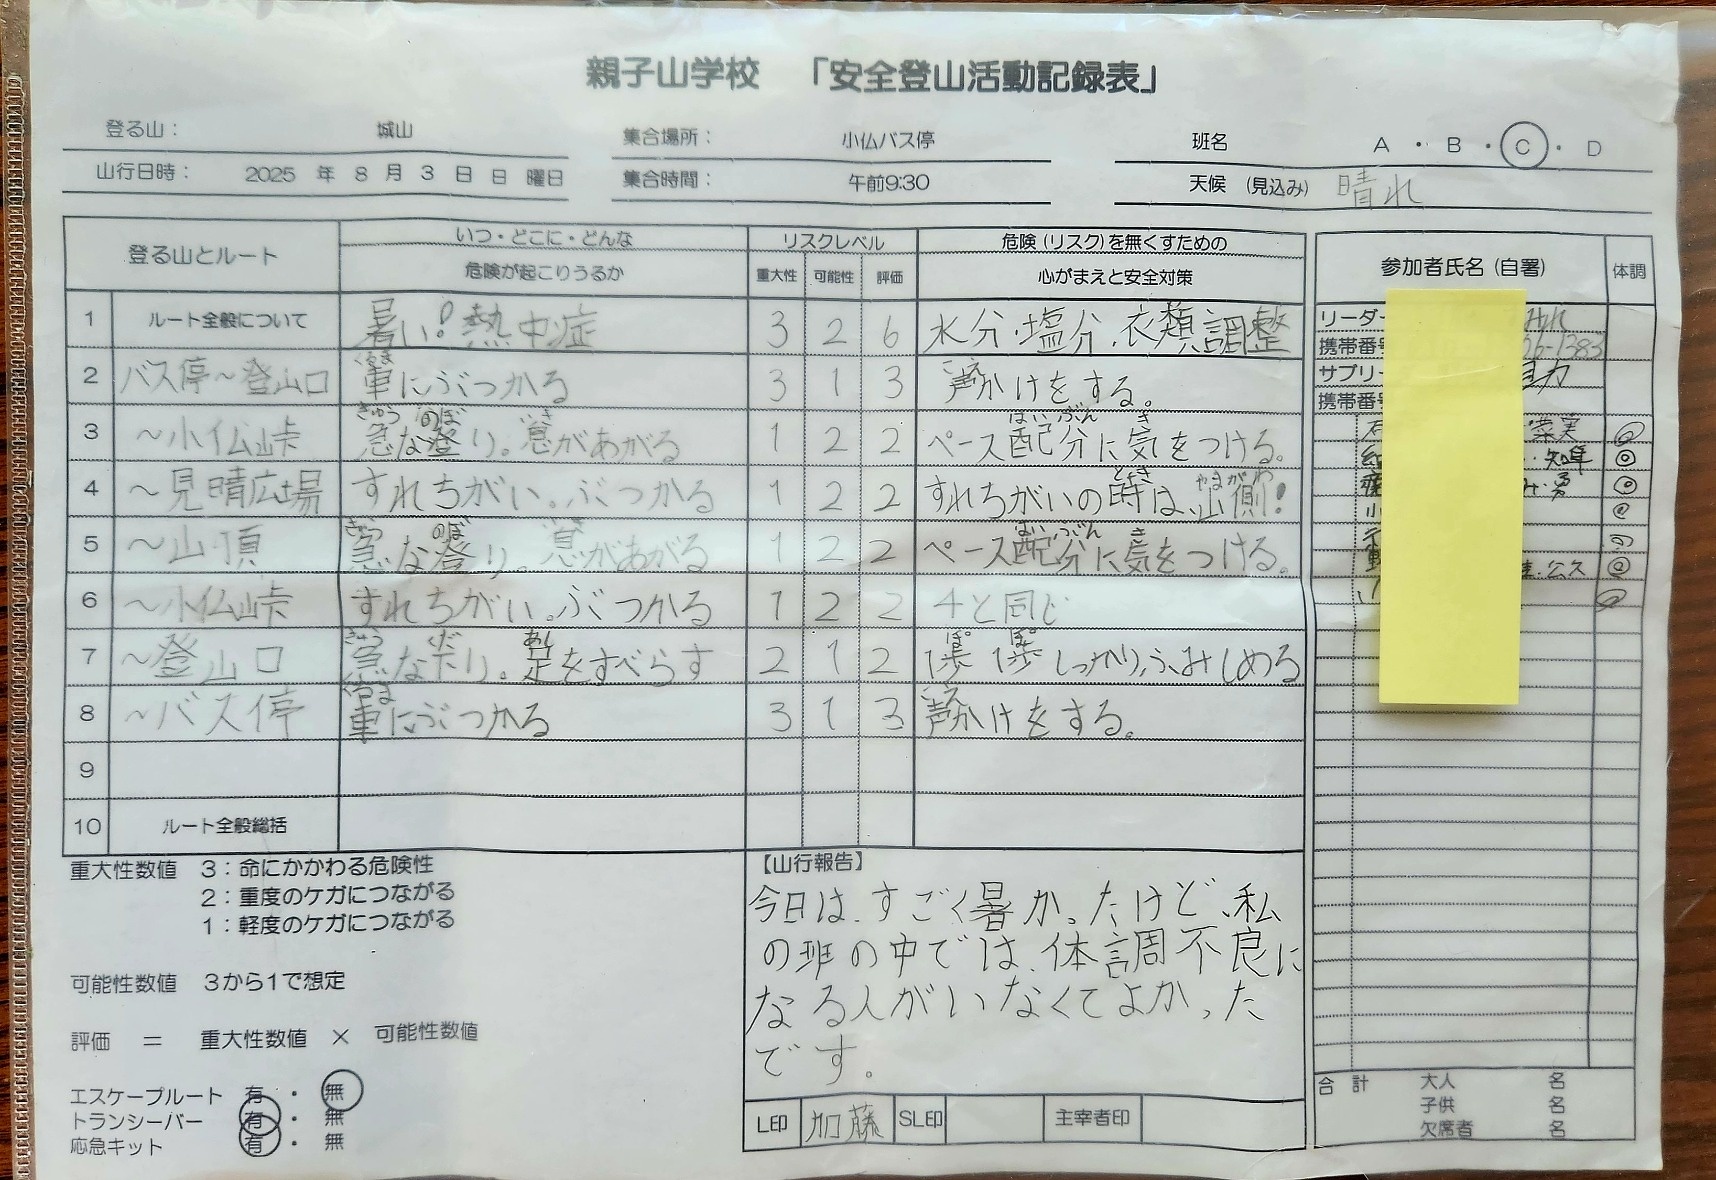 親子山学校 「安全登山活動記録表」
登る山： 城山 集合場所： 小仏バス停 班名 A ・ B ・ C ・ D
山行日時： 2025 年 8 月 3 日 日 曜日 集合時間： 午前9:30 天候 (見込み) 晴れ
登る山とルート いつ・どこに・どんな 危険が起こりうるか リスクレベル 重大性 可能性 評価 危険(リスク)を無くすための 心がまえと安全対策
1 ルート全般について 暑い！熱中症 3 2 6 水分・塩分、衣類調整
くるま こえ
2 バス停～登山口 車にぶつかる 3 1 3 声かけをする。
きゅう のぼ いき はいぶん き
3 ～小仏峠 急な登り。息があがる 1 2 2 ペース配分に気をつける。
とき やまがわ
4 ～見晴広場 すれちがい。ぶつかる 1 2 2 すれちがいの時は、山側！
きゅう のぼ いき はいぶん き
5 ～山頂 急な登り。息があがる 1 2 2 ペース配分に気をつける。
6 ～小仏峠 すれちがい。ぶつかる 1 2 2 4と同じ
きゅう あし ぽ ぽ
7 ～登山口 急な下り。足をすべらす 2 1 2 1歩1歩しっかりふみしめる
くるま こえ
8 ～バス停 車にぶつかる 3 1 3 声かけをする。
9
10 ルート全般総括
参加者氏名(自署) 体調
リーダー
携帯番号
サブリー
携帯番号
重大性数値 3：命にかかわる危険性
2：重度のケガにつながる
1：軽度のケガにつながる
可能性数値 3から1で想定
評価 ＝ 重大性数値 × 可能性数値
エスケープルート 有 ・ 無
トランシーバー 有 ・ 無
応急キット 有 ・ 無
【山行報告】
今日は、すごく暑かったけど、私
の班の中では、体調不良に
なる人がいなくてよかった
です。
L印 加藤 SL印 主宰者印
合計 大人 名
子供 名
欠席者 名